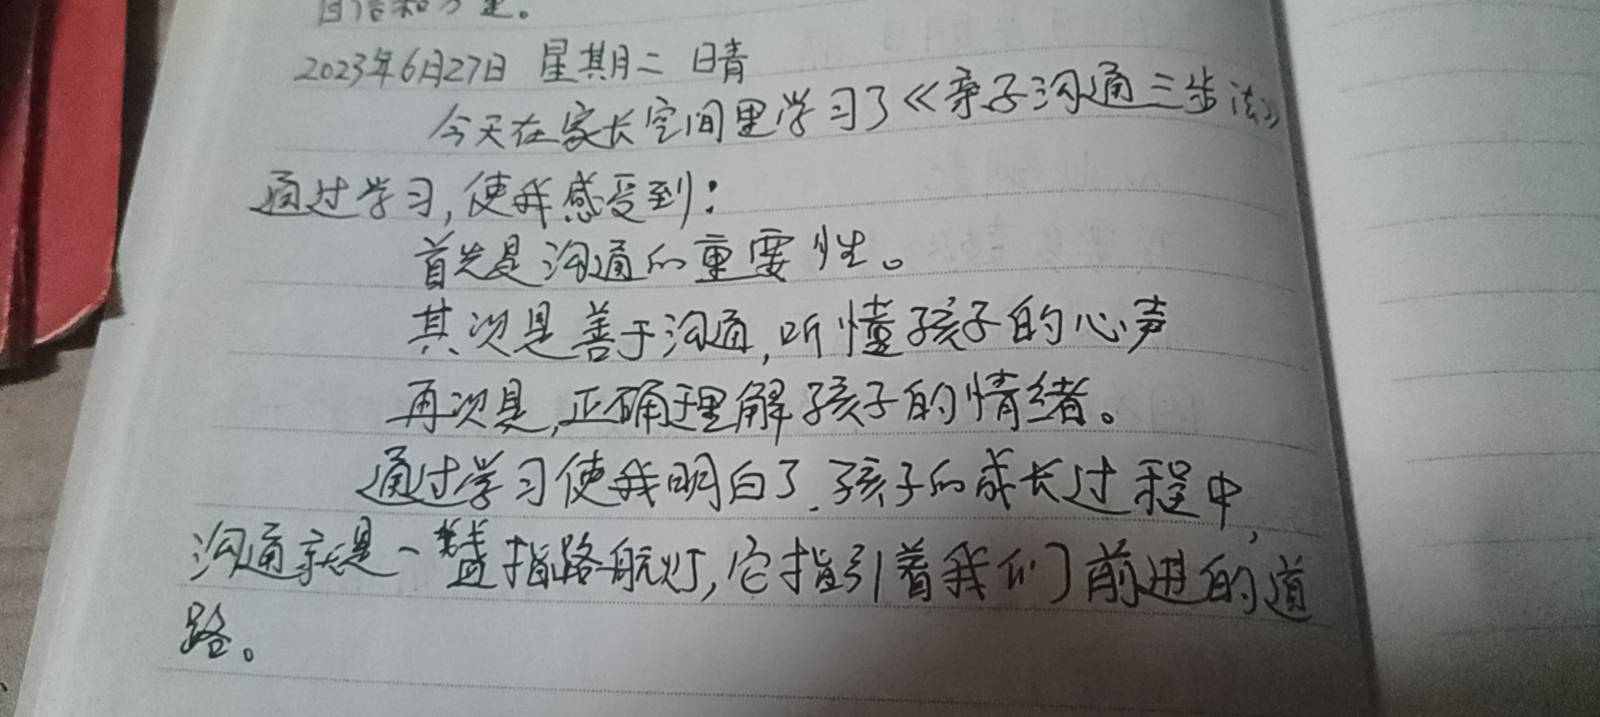 自信和力量。
2023年6月27日 星期二 晴
今天在家长空间里学习了《亲子沟通三步法》
通过学习,使我感受到:
首先是沟通的重要性。
其次是善于沟通,听懂孩子的心声
再次是,正确理解孩子的情绪。
通过学习使我明白了.孩子的成长过程中,
沟通就是一盏指路航灯,它指引着我们前进的道
路。